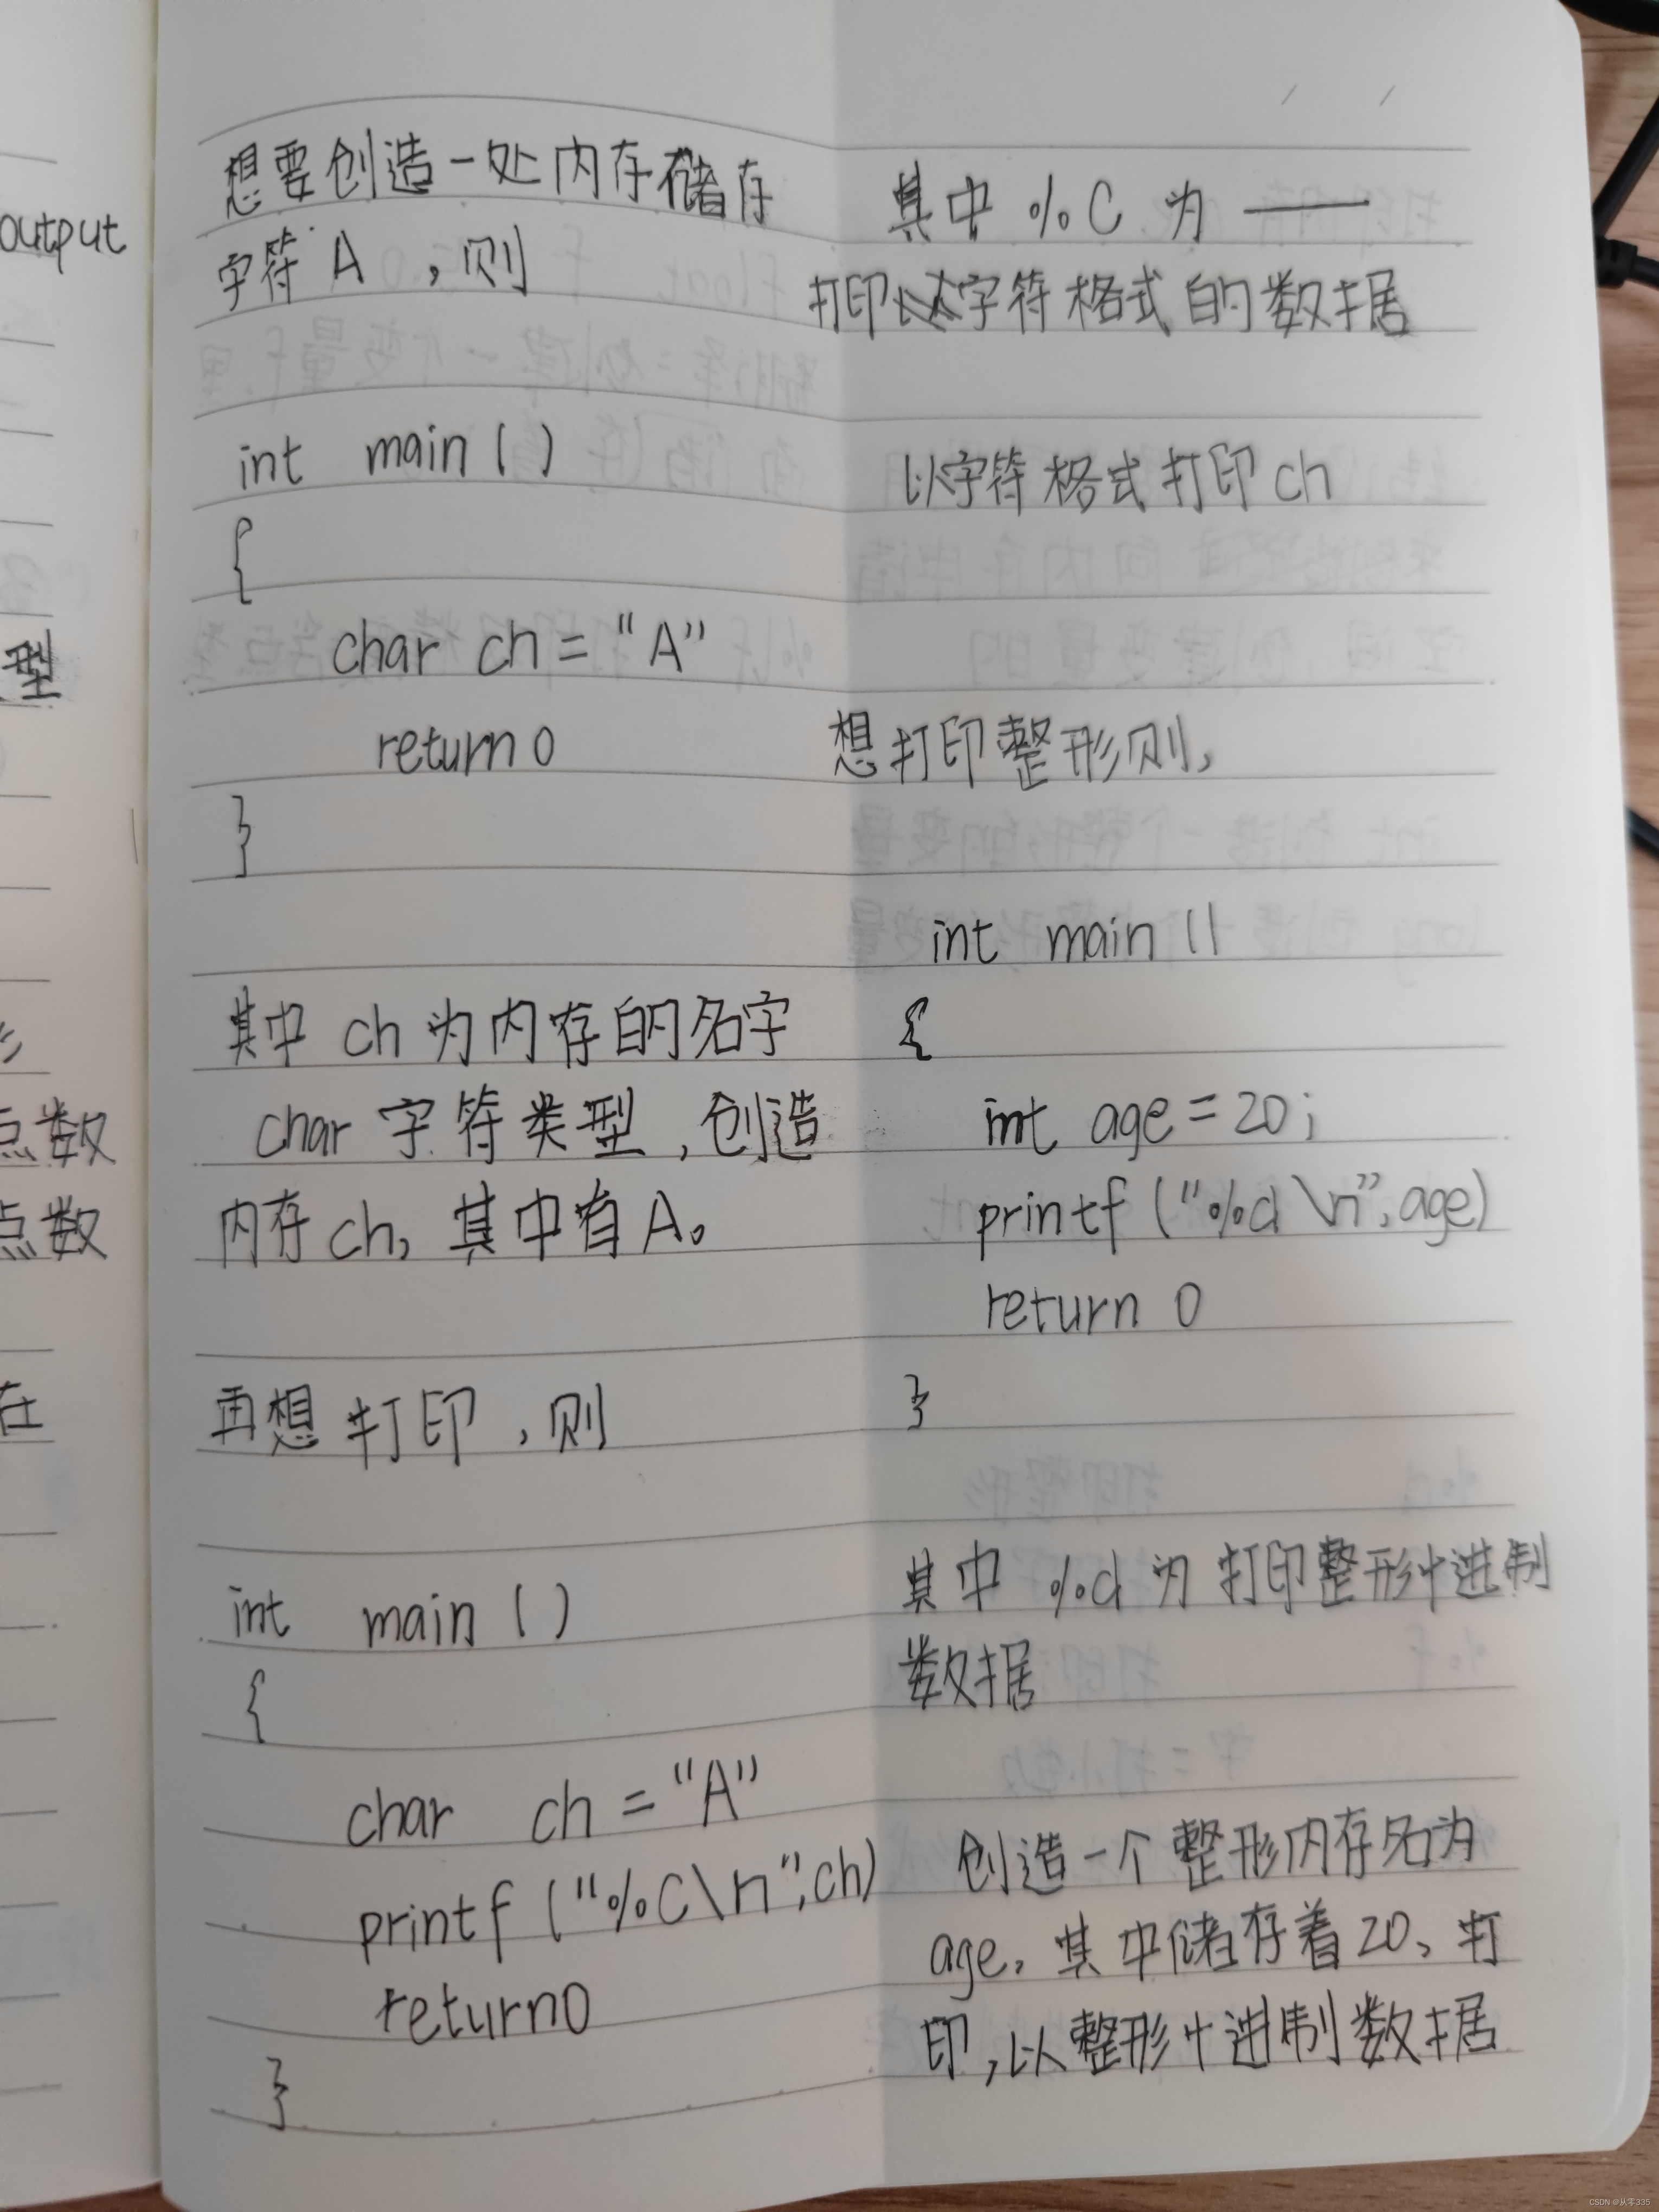 output
型
点数
点数
在
想要创造一处内存储存
字符 A ，则
int main ( )
{
char ch = “A”
return 0
}
其中 ch 为内存的名字
char 字符类型，创造
内存 ch，其中有A。
再想打印，则
int main ( )
{
char ch = “A”
printf (“%C\n”,ch)
return0
}
其中 %C 为 ——
打印以字符格式的数据
以字符格式打印 ch
想打印整形则，
int main ()
{
int age = 20;
printf (“%d \n”, age)
return 0
}
其中 %d 为 打印整形十进制
数据
创造一个整形内存名为
age，其中储存着20、打
印，以整形十进制数据
CSDN @从零335